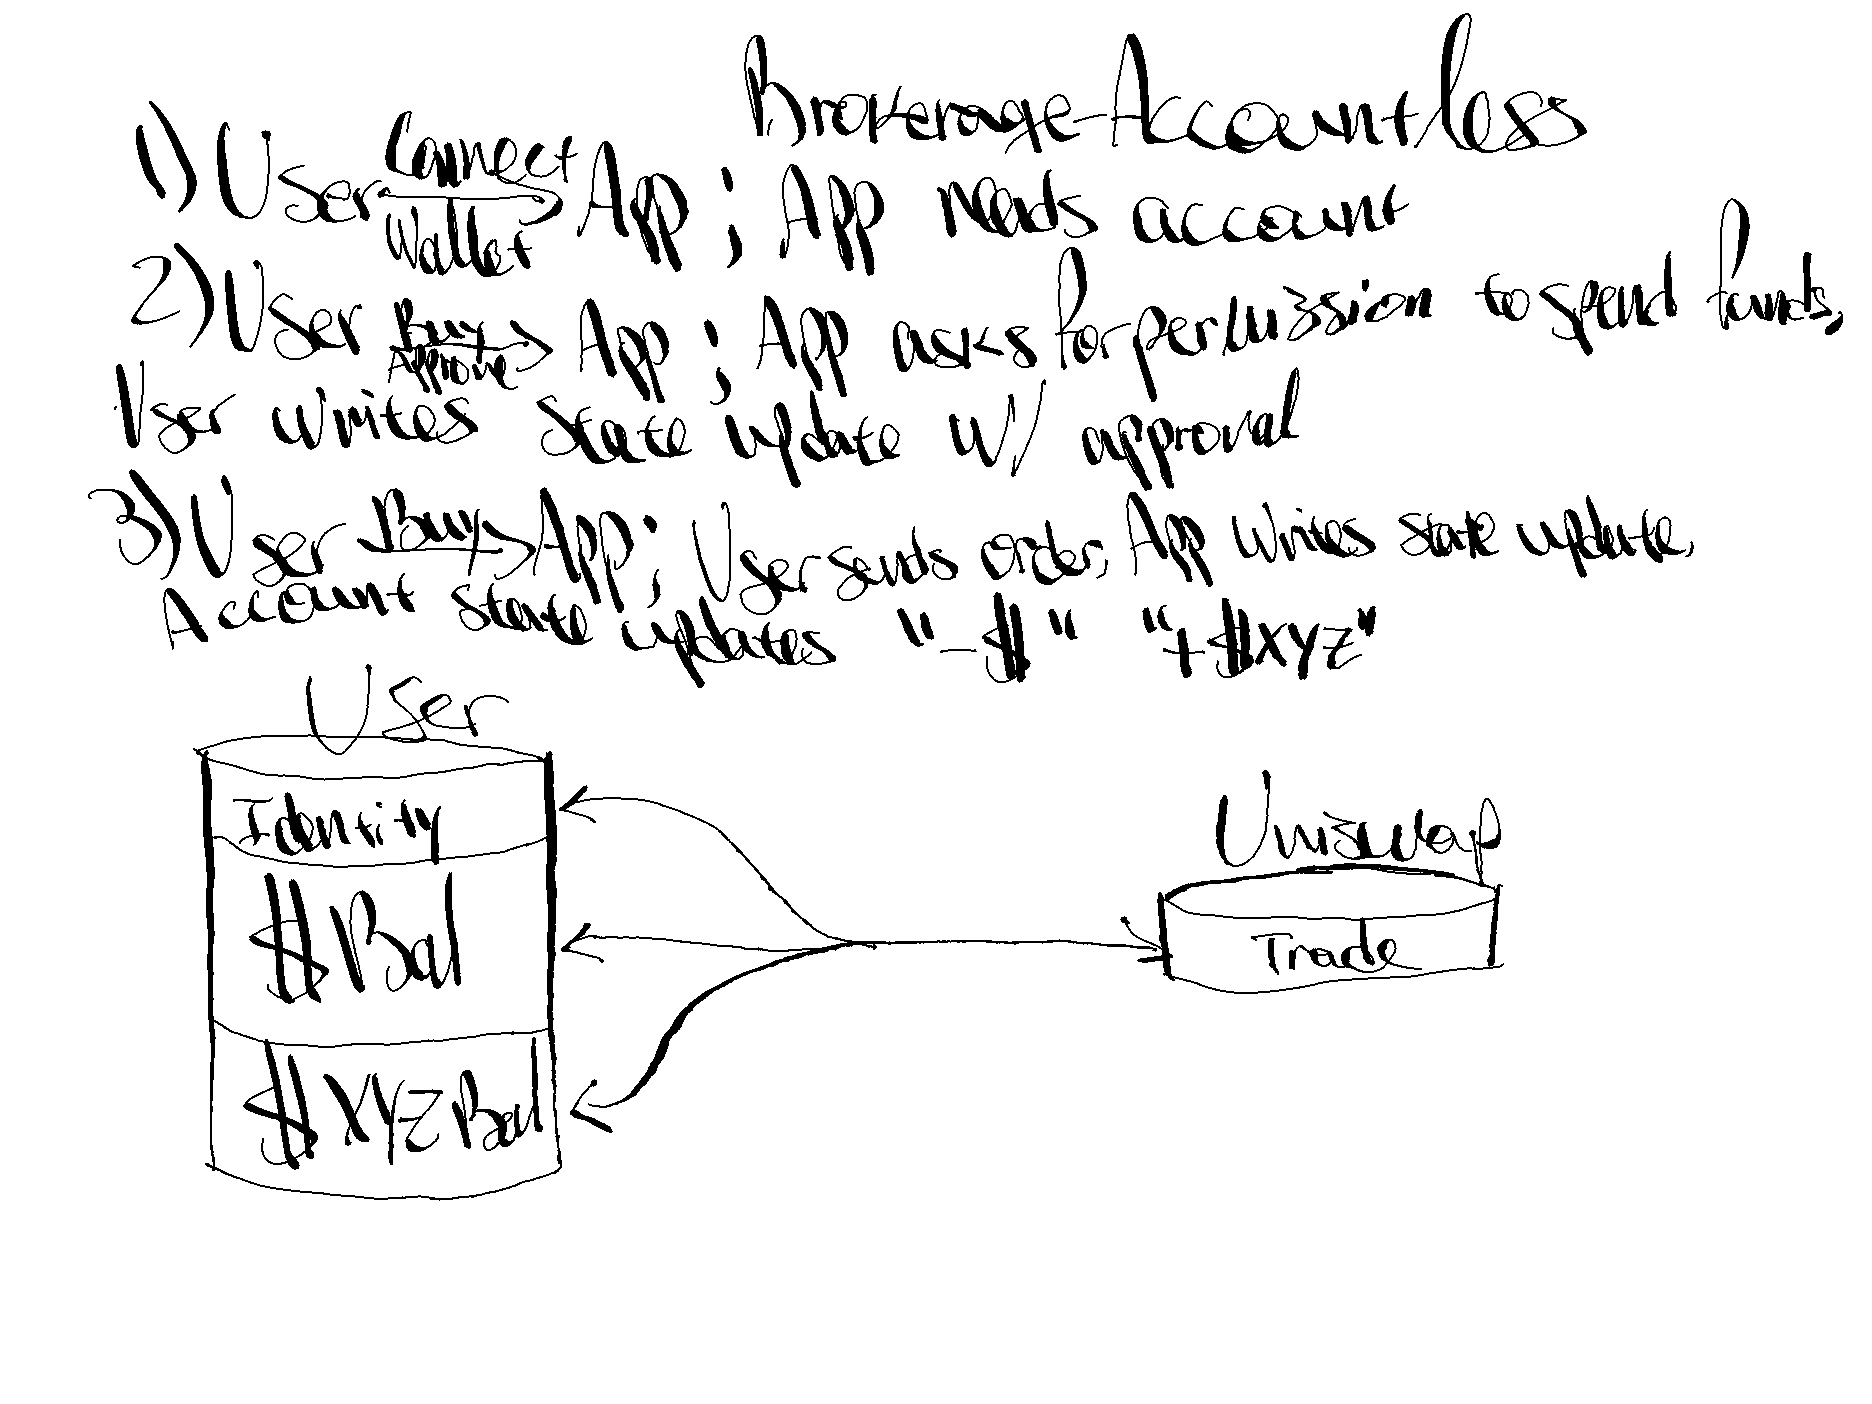 Brokerage-Accountless
1) User Connect Wallet App ; App needs account
2) User Buy Approve App ; App asks for permission to spend funds,
User writes state update w/ approval
3) User Buy App ; User sends order, App writes state update,
Account state updates "-$" "+$XYZ"
User
Identity
$ Bal
$XYZ Bal
Uniswap
Trade